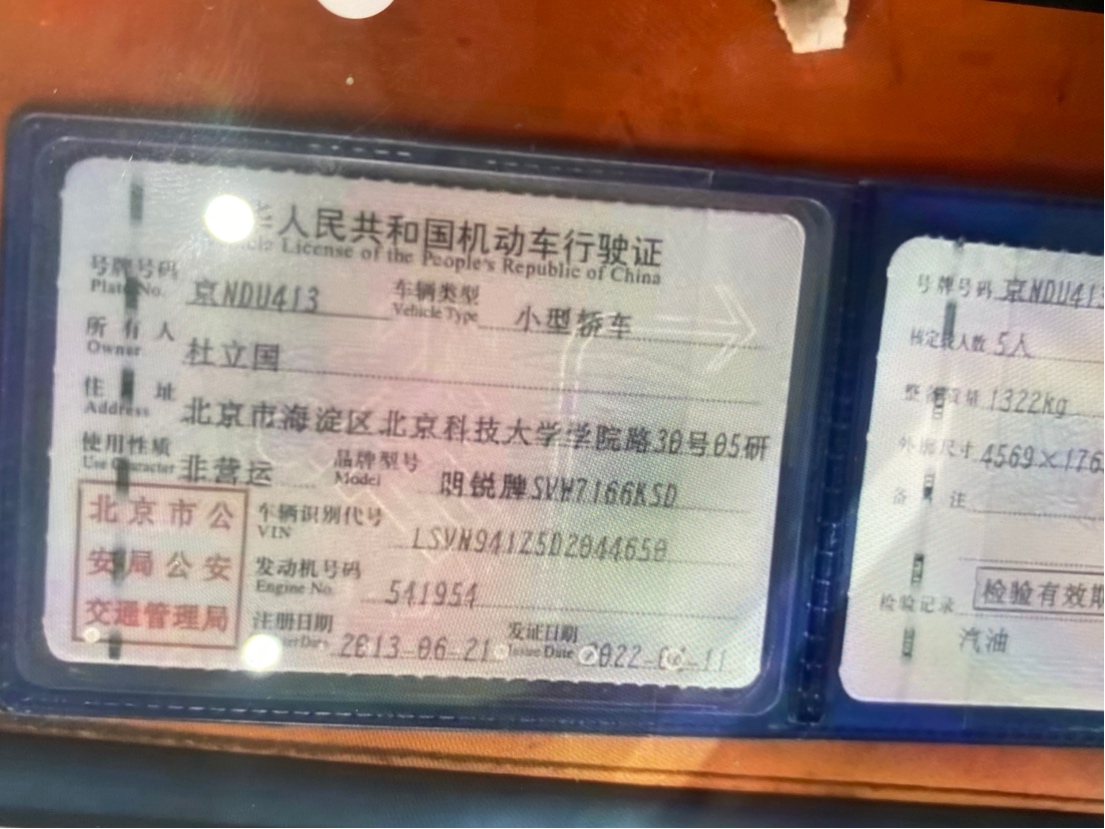 人民共和国机动车行驶证
License of the People's Republic of China
号牌号码 京NDU413 车辆类型 小型轿车
Plate No. Vehicle Type
所有人 杜立国
Owner
住址 北京市海淀区北京科技大学学院路30号05研
Address
使用性质 非营运 品牌型号 明锐牌SVW7166KSD
Use Character Model
北京市公
安局公安
交通管理局
车辆识别代号 LSVN941Z5D2044650
VIN
发动机号码 541954
Engine No.
注册日期 2013-06-21 发证日期 2022-
Issue Date
号牌号码 京NDU413
核定载人数 5人
整备质量 1322kg
外廓尺寸 4569×176
备注
检验记录 检验有效期
汽油